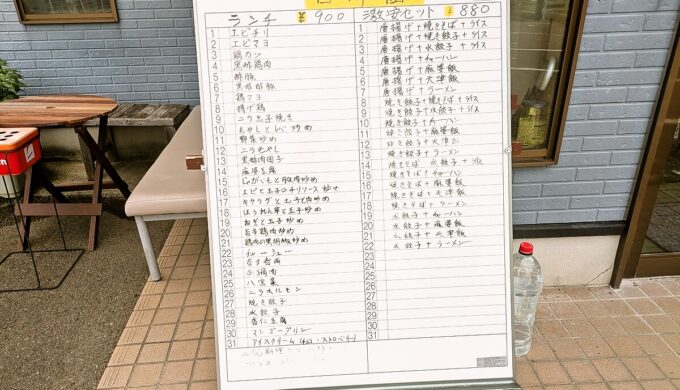 ランチ ¥900
1 エビチリ
2 エビマヨ
3 鶏カツ
4 黒酢鶏肉
5 酢豚
6 黒酢酢豚
7 鶏マヨ
8 揚げ鶏
9 ニラ玉子焼き
10 もやしとレバ炒め
11 野菜炒め
12 ニラもやし
13 黒酢肉団子
14 麻婆豆腐
15 じゃがいもと豚肉炒め
16 エビと玉子のチリソース炒め
17 キクラゲと玉子と肉炒め
18 ほうれん草と玉子炒め
19 ねぎと玉子炒め
20 旨辛鶏肉炒め
21 鶏肉の黒胡椒炒め
22 チャーシュー
23 なす
24 鶏肉
25 八宝菜
26 ニラホルモン
27 焼き餃子
28 水餃子
29 杏仁豆腐
30 マンゴープリン
31 アイスクリーム(チョコ・ストロベリー)
激安セット ¥880
1 唐揚げ+焼きそば+ライス
2 唐揚げ+焼き餃子+ライス
3 唐揚げ+水餃子+ライス
4 唐揚げ+チャーハン
5 唐揚げ+麻婆飯
6 唐揚げ+天津飯
7 唐揚げ+ラーメン
8 焼き餃子+焼きそば+ライス
9 焼き餃子+水餃子+ライス
10 焼き餃子+チャーハン
11 焼き餃子+麻婆飯
12 焼き餃子+天津飯
13 焼き餃子+ラーメン
14 焼きそば 水餃子+ライス
15 焼きそば+チャーハン
16 焼きそば+麻婆飯
17 焼きそば+天津飯
18 焼きそば+ラーメン
19 水餃子+チャーハン
20 水餃子+麻婆飯
21 水餃子+天津飯
22 水餃子+ラーメン
23
24
25
26
27
28
29
30
31